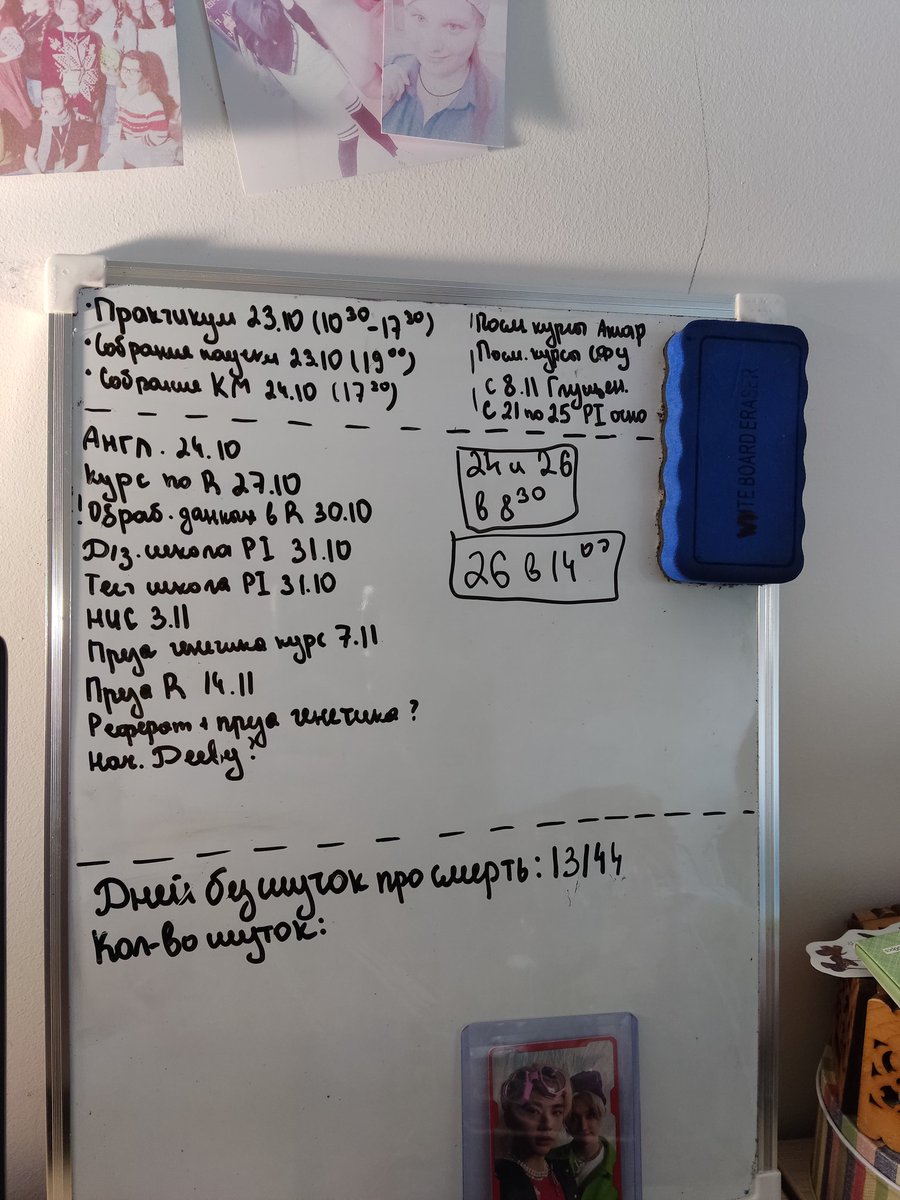 · Практикум 23.10 (10³⁰-17³⁰)
· Собрание 23.10 (19⁰⁰)
· Собрание КМ 24.10 (17³⁰)
! Посм курсы
! Посм. курсы СФУ
! С 8.11 Глущен.
! С 21 по 25 PI очно
Англ. 24.10
Курс по R 27.10
! Обраб. данных в R 30.10
Д/з. школа PI 31.10
Тест школа PI 31.10
НИС 3.11
Преза генетика курс 7.11
Преза R 14.11
Реферат + преза генетика ?
?
24 и 26
в 8³⁰
26 в 14⁰⁰
Дней без шуток про смерть: 13/44
Кол-во шуток:
WHITEBOARD ERASER